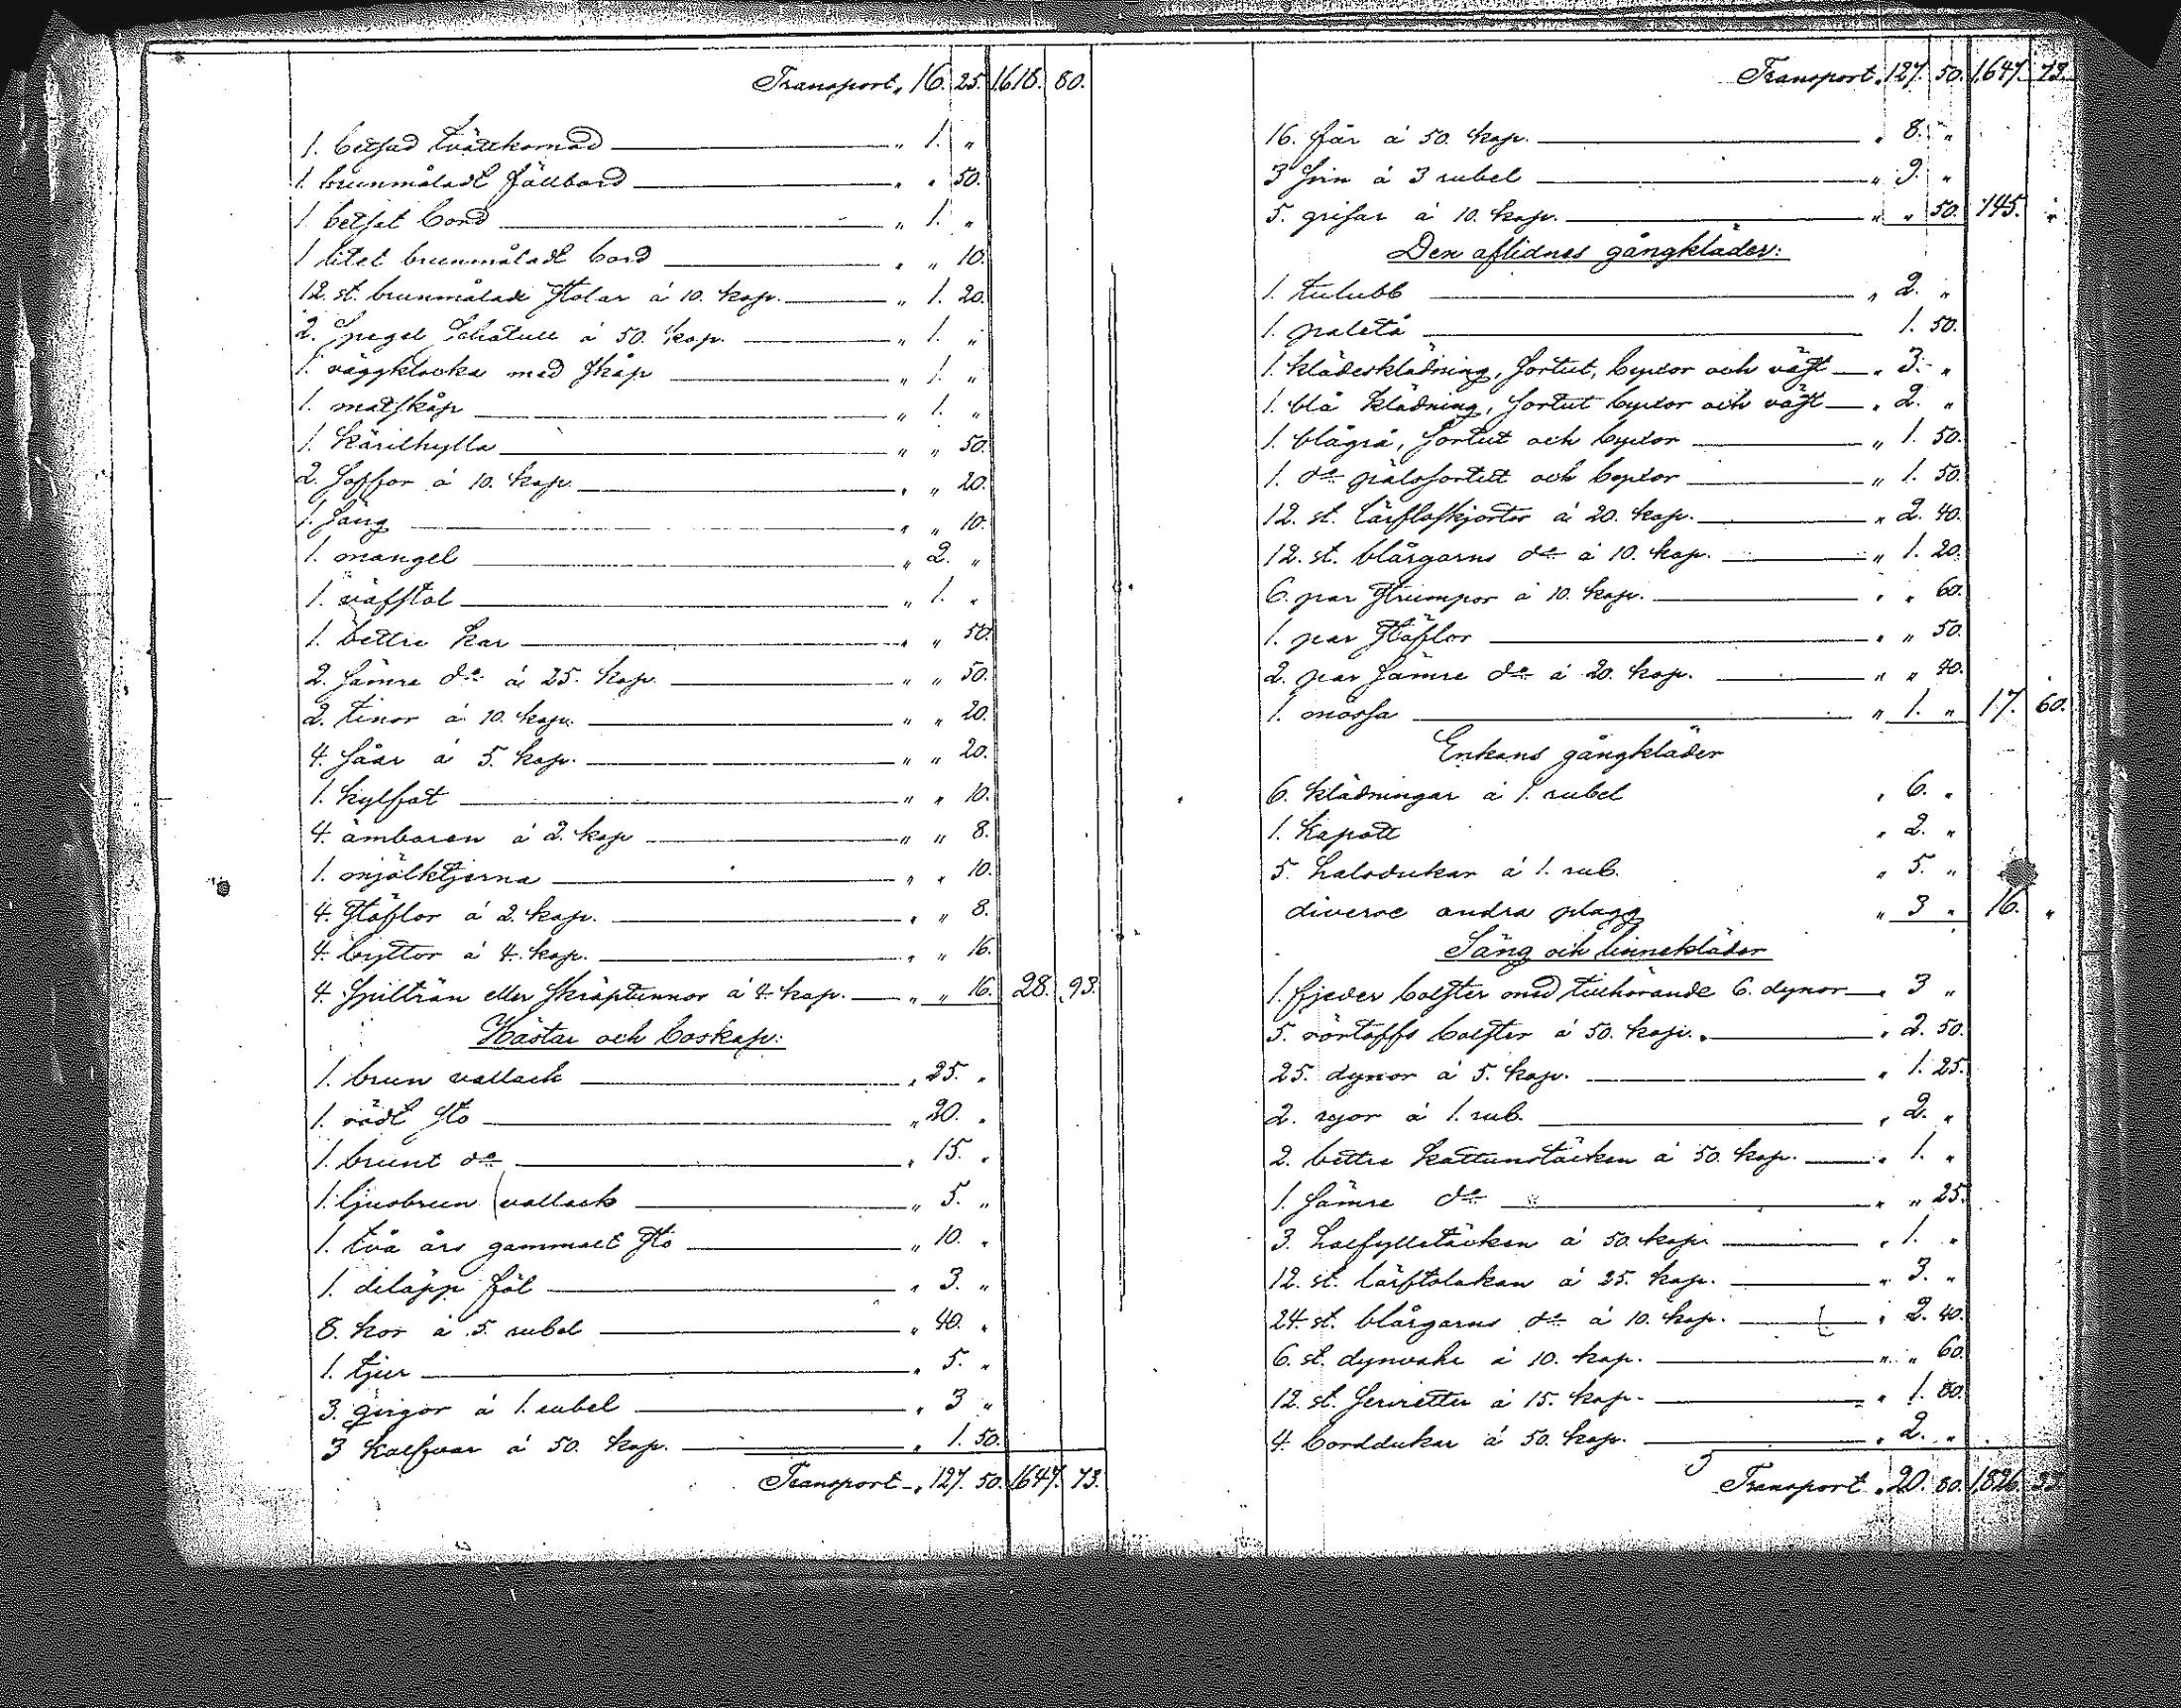 Transport „ 16. 25. 1,618. 80.
1. betsad tvättkomod „ 1. „
1. brunmåladt fällbord „ „ 50.
1. betsat bord „ 1. „
1 litet brunmåladt bord „ „ 10.
12. st. brunmålade stolar á 10. kop. „ 1. 20.
2. Spegel Schatull á 50. kop. „ 1. „
1. väggklocka med skåp „ 1. „
1. matskåp „ 1. „
1. kärilhylla „ „ 50.
2. soffor á 10. kop. „ „ 20.
1. säng „ „ 10.
1. mangel „ 2. „
1. väfstol „ 1. „
1. bettre kar „ „ 50.
2. sämre do á 25. kop. „ „ 50.
2. tinor á 10. kop. „ „ 20.
4. såar á 5. kop. „ „ 20.
1. kylfat „ „ 10.
4. ämbaren á 2. kop „ „ 8.
1. mjölktjerna „ „ 10.
4. stäflor á 2. kop. „ „ 8.
4. byttor á 4. kop. „ „ 16.
4. spilträn eller skräptunnor á 4. kop. „ „ 16. 28. 93.
Hästar och boskap:
1. brun vallack „ 25. „
1. rödt sto „ 20. „
1. brunt do „ 15. „
1. ljusbrun vallack „ 5. „
1. två års gammalt sto „ 10. „
1. diläpp föl „ 3. „
8. kor á 5. rubel „ 40. „
1. tjur „ 5. „
3. qvigor á 1. rubel „ 3 „
3 kalfvar á 50. kop. „ 1. 50.
Transport „ 127. 50. 1647. 73.
Transport „ 127. 50. 1,647. 73.
16. får á 50. kop. „ 8. „
3 svin á 3 rubel „ 9. „
5. grisar á 10. kop. „ „ 50. 145. „
Den aflidnes gångkläder:
1. tulubb „ 2. „
1. paletå 1. 50.
1. klädesklädning, sortut, byxor och väst „ 3. „
1. blå klädning, sortut byxor och väst „ 2. „
1. blågrå, sortut och byxor „ 1. 50.
1. do pälssortut och byxor „ 1. 50.
12. st. lärftsskjortor á 20. kop. „ 2. 40.
12. st. blårgarns do á 10. kop. „ 1. 20.
6. par strumpor á 10. kop. „ „ 60.
1. par stöflor „ „ 50.
2. par sämre do á 20. kop. „ „ 40.
1. mössa „ 1. „ 17. 60.
Enkans gångkläder
6. klädningar á 1. rubel „ 6. „
1. kapott „ 2. „
5. halsdukar á 1. rub. „ 5. „
diverse andra plagg „ 3 „ 16. „
Säng och linnekläder
1. fjeder bolster med tillhörande 6. dynor „ 3 „
5. rörtoffs bolster á 50. kop. „ 2. 50.
25. dynor á 5. kop. „ 1. 25.
2. ryor á 1. rub. „ 2. „
2. bettre kattunstäcken á 50. kop. „ 1. „
1. sämre do „ „ 25.
3. halfyllstäcken á 50. kop. „ 1. „
12. st. lärftslakan á 25. kop. „ 3. „
24. st. blårgarns do á 10. kop. „ 2. 40.
6. st. dynvahr á 10. kop. „ „ 60.
12. st. servietter á 15. kop. „ 1. 80.
4. borddukar á 50. kop. „ 2. „
Transport „ 20. 80. 1,826. 33